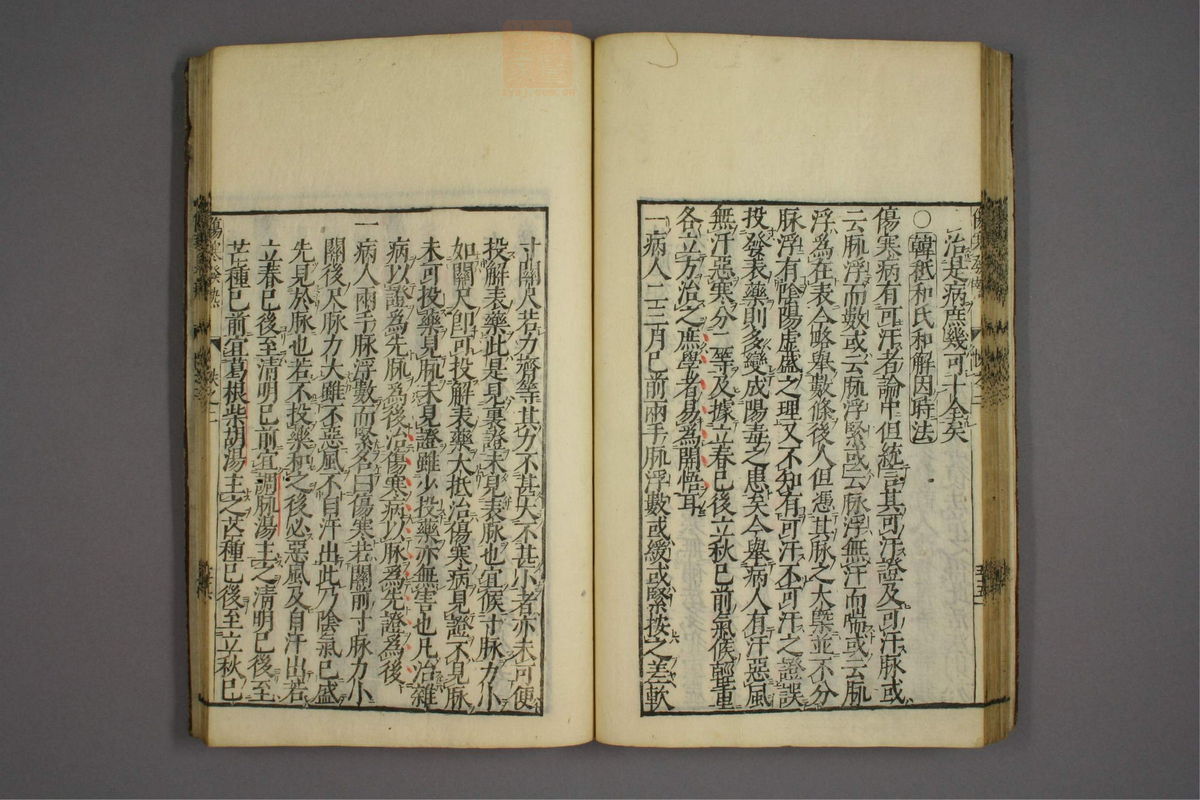 治是病庶幾可十全矣
○韓祇和氏和解因時法
傷寒病有可汗者論中但統言其可汗證及可汗脉或
云脉浮而數或云脉浮緊或云脉浮無汗而喘或云脉
浮為在表今略舉數條後人但憑其脉之大槩並不分
脉浮有陰陽虛盛之理又不知有可汗不可汗之證誤
投發表藥則多變成陽毒之患矣今舉病人有汗惡風
無汗惡寒分二等及據立春已後立秋已前氣候輕重
各立方治之庶學者易為開悟耳
一病人二三月已前兩手脉浮數或緩或緊按之差軟
寸關尺若力齊等其力不甚大不甚小者亦未可便
投解表藥此是見裏證未見表脉也宜候寸脉力小
如關尺即可投解表藥大抵治傷寒病見證不見脉
未可投藥見脉未見證雖少投藥亦無害也凡治雜
病以證為先脉為後治傷寒病以脉為先證為後
一病人兩手脉浮數而緊名曰傷寒若關前寸脉力小
關後尺脉力大雖不惡風不自汗出此乃陰氣已盛
先見於脉也若不投藥和之後必惡風及自汗出若
立春已後至清明已前宜調脉湯主之清明已後至
芒種已前宜葛根柴胡湯主之芒種已後至立秋已